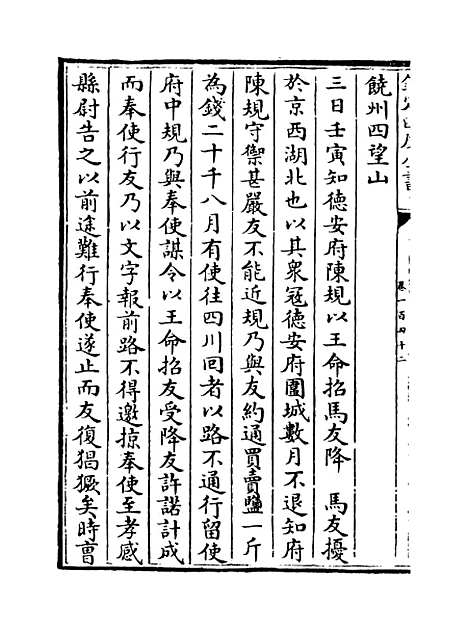 饒州四望山
三日壬寅知德安府陳規以王命招馬友降　馬友擾
於京西湖北也以其衆冦德安府圍城數月不退知府
陳規守禦甚嚴友不能近規乃與友約通買賣鹽一斤
為錢二十千八月有使往四川回者以路不通行留使
府中規乃與奉使謀令以王命招友受降友許諾計成
而奉使行友乃以文字報前路不得邀掠奉使至孝感
縣尉告之以前途難行奉使遂止而友復猖獗矣時曺
卷一百四十二